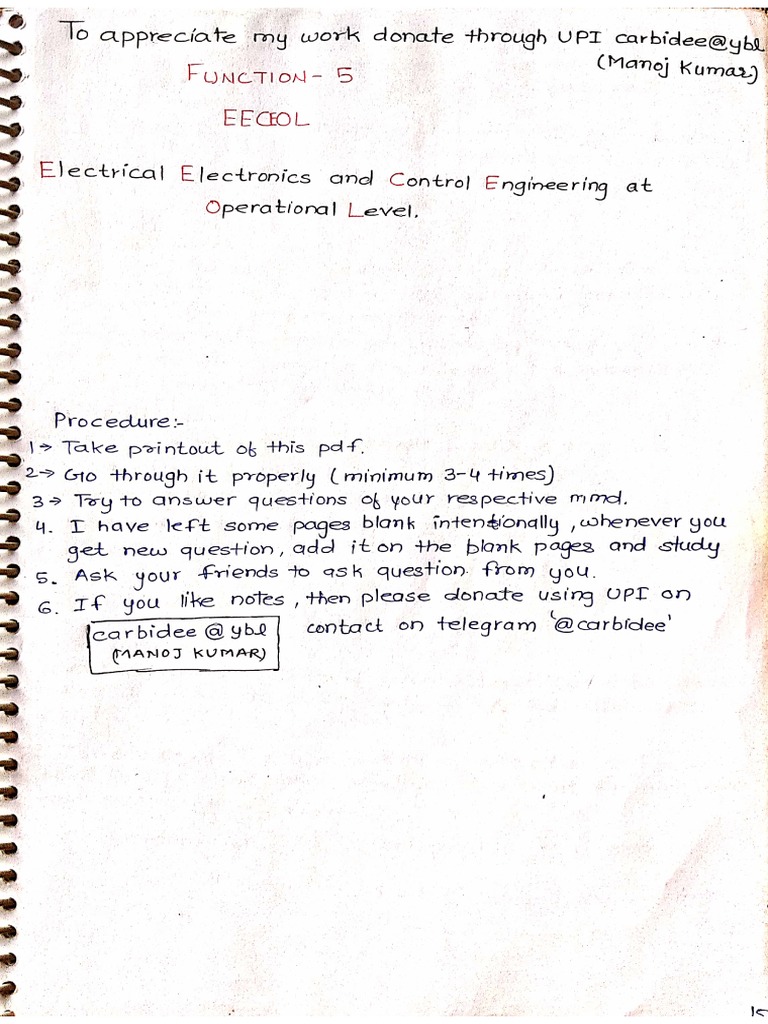 To appreciate my work donate through UPI carbidee@ybl
(Manoj Kumar)
FUNCTION - 5
EECEOL
Electrical Electronics and Control Engineering at
Operational Level.
Procedure:-
1→ Take printout of this pdf.
2→ Go through it properly (minimum 3-4 times)
3→ Try to answer questions of your respective mmd.
4. I have left some pages blank intentionally, whenever you
get new question, add it on the blank pages and study
5. Ask your friends to ask question from you.
6. If you like notes, then please donate using UPI on
carbidee@ybl contact on telegram '@carbidee'
(MANOJ KUMAR)